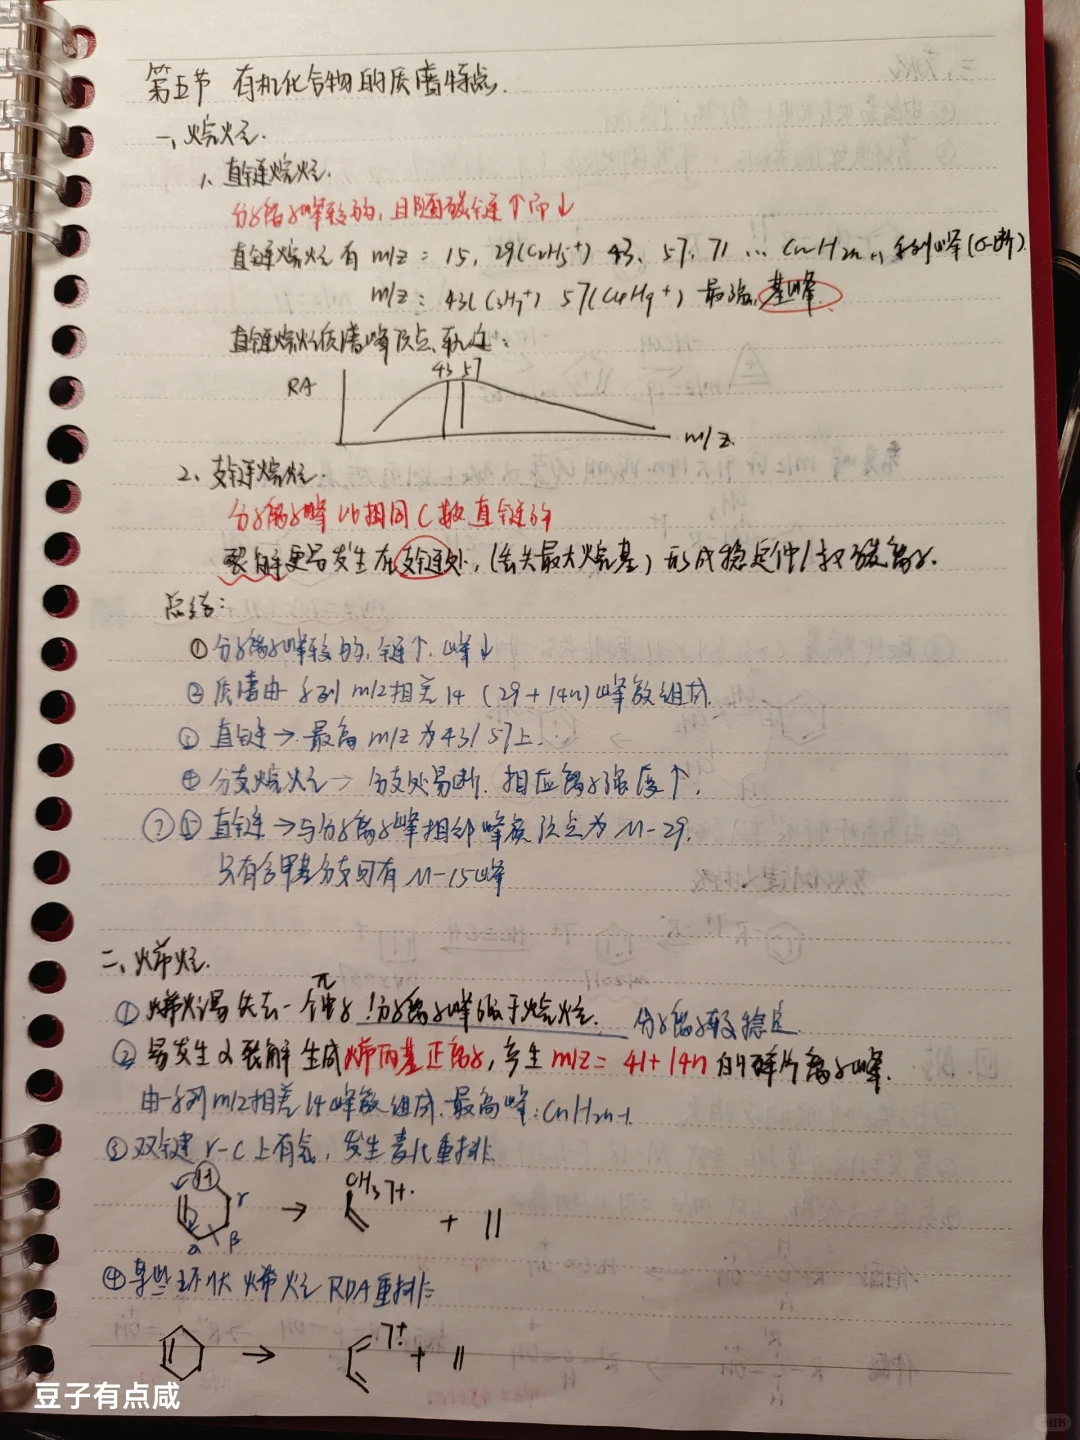 第五节 有机化合物的质谱特点.
一、烷烃.
1、直链烷烃.
分子离子峰较弱, 且随碳链↑而↓
直链烷烃有 m/z = 15, 29(C2H5+) 43, 57, 71 … CnH2n+1 系列峰(σ-断).
m/z: 43(C3H7+) 57(C4H9+) 最强, 基峰.
直链烷烃质谱峰顶点轨迹:
43 57
RA
m/z.
2、支链烷烃.
分子离子峰比相同C数直链的
裂解更易发生在支链处, (丢失最大烷基) 形成稳定仲/叔碳离子.
总结:
①分子离子峰较弱, 链↑, 峰↓
②质谱由一系列 m/z 相差 14 (29+14n) 峰簇组成.
③ 直链→ 最高 m/z 为 43/57上.
④ 分支烷烃→ 分支处易断, 相应离子强度↑.
? ⑤ 直链→与分子离子峰相邻峰簇顶点为 M-29.
只有含甲基分支可有 M-15峰
二、烯烃.
π
① 烯烃易失去一个电子, 分子离子峰强于烷烃. 分子离子较稳定.
② 易发生α裂解 生成烯丙基正离子, 产生 m/z = 41+14n 的碎片离子峰.
由一系列 m/z 相差 14峰簇组成, 最高峰: CnH2n-1
③ 双键 γ-C 上有氢, 发生麦氏重排.
H γ α β → CH3 ㄱ+· + ||
④某些环状烯烃 RDA重排:
→ ㄱ+· + ||
豆子有点咸